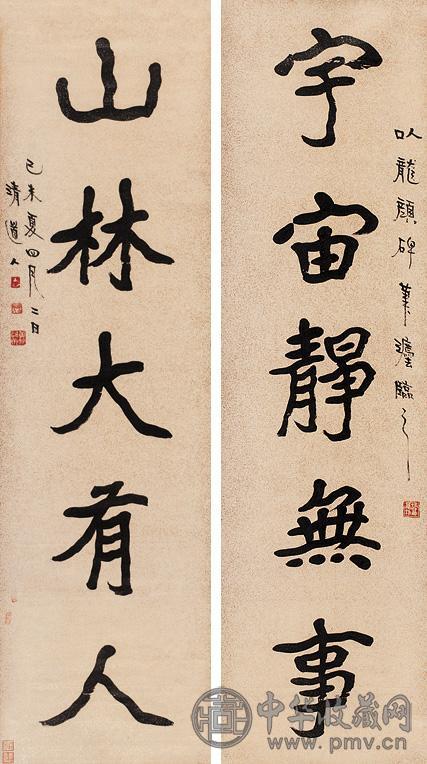 宇宙靜無事
以龍顏碑筆
臨之
山林大有人
己未夏四月二日
清道人
中华收藏网
www.pmv.cn